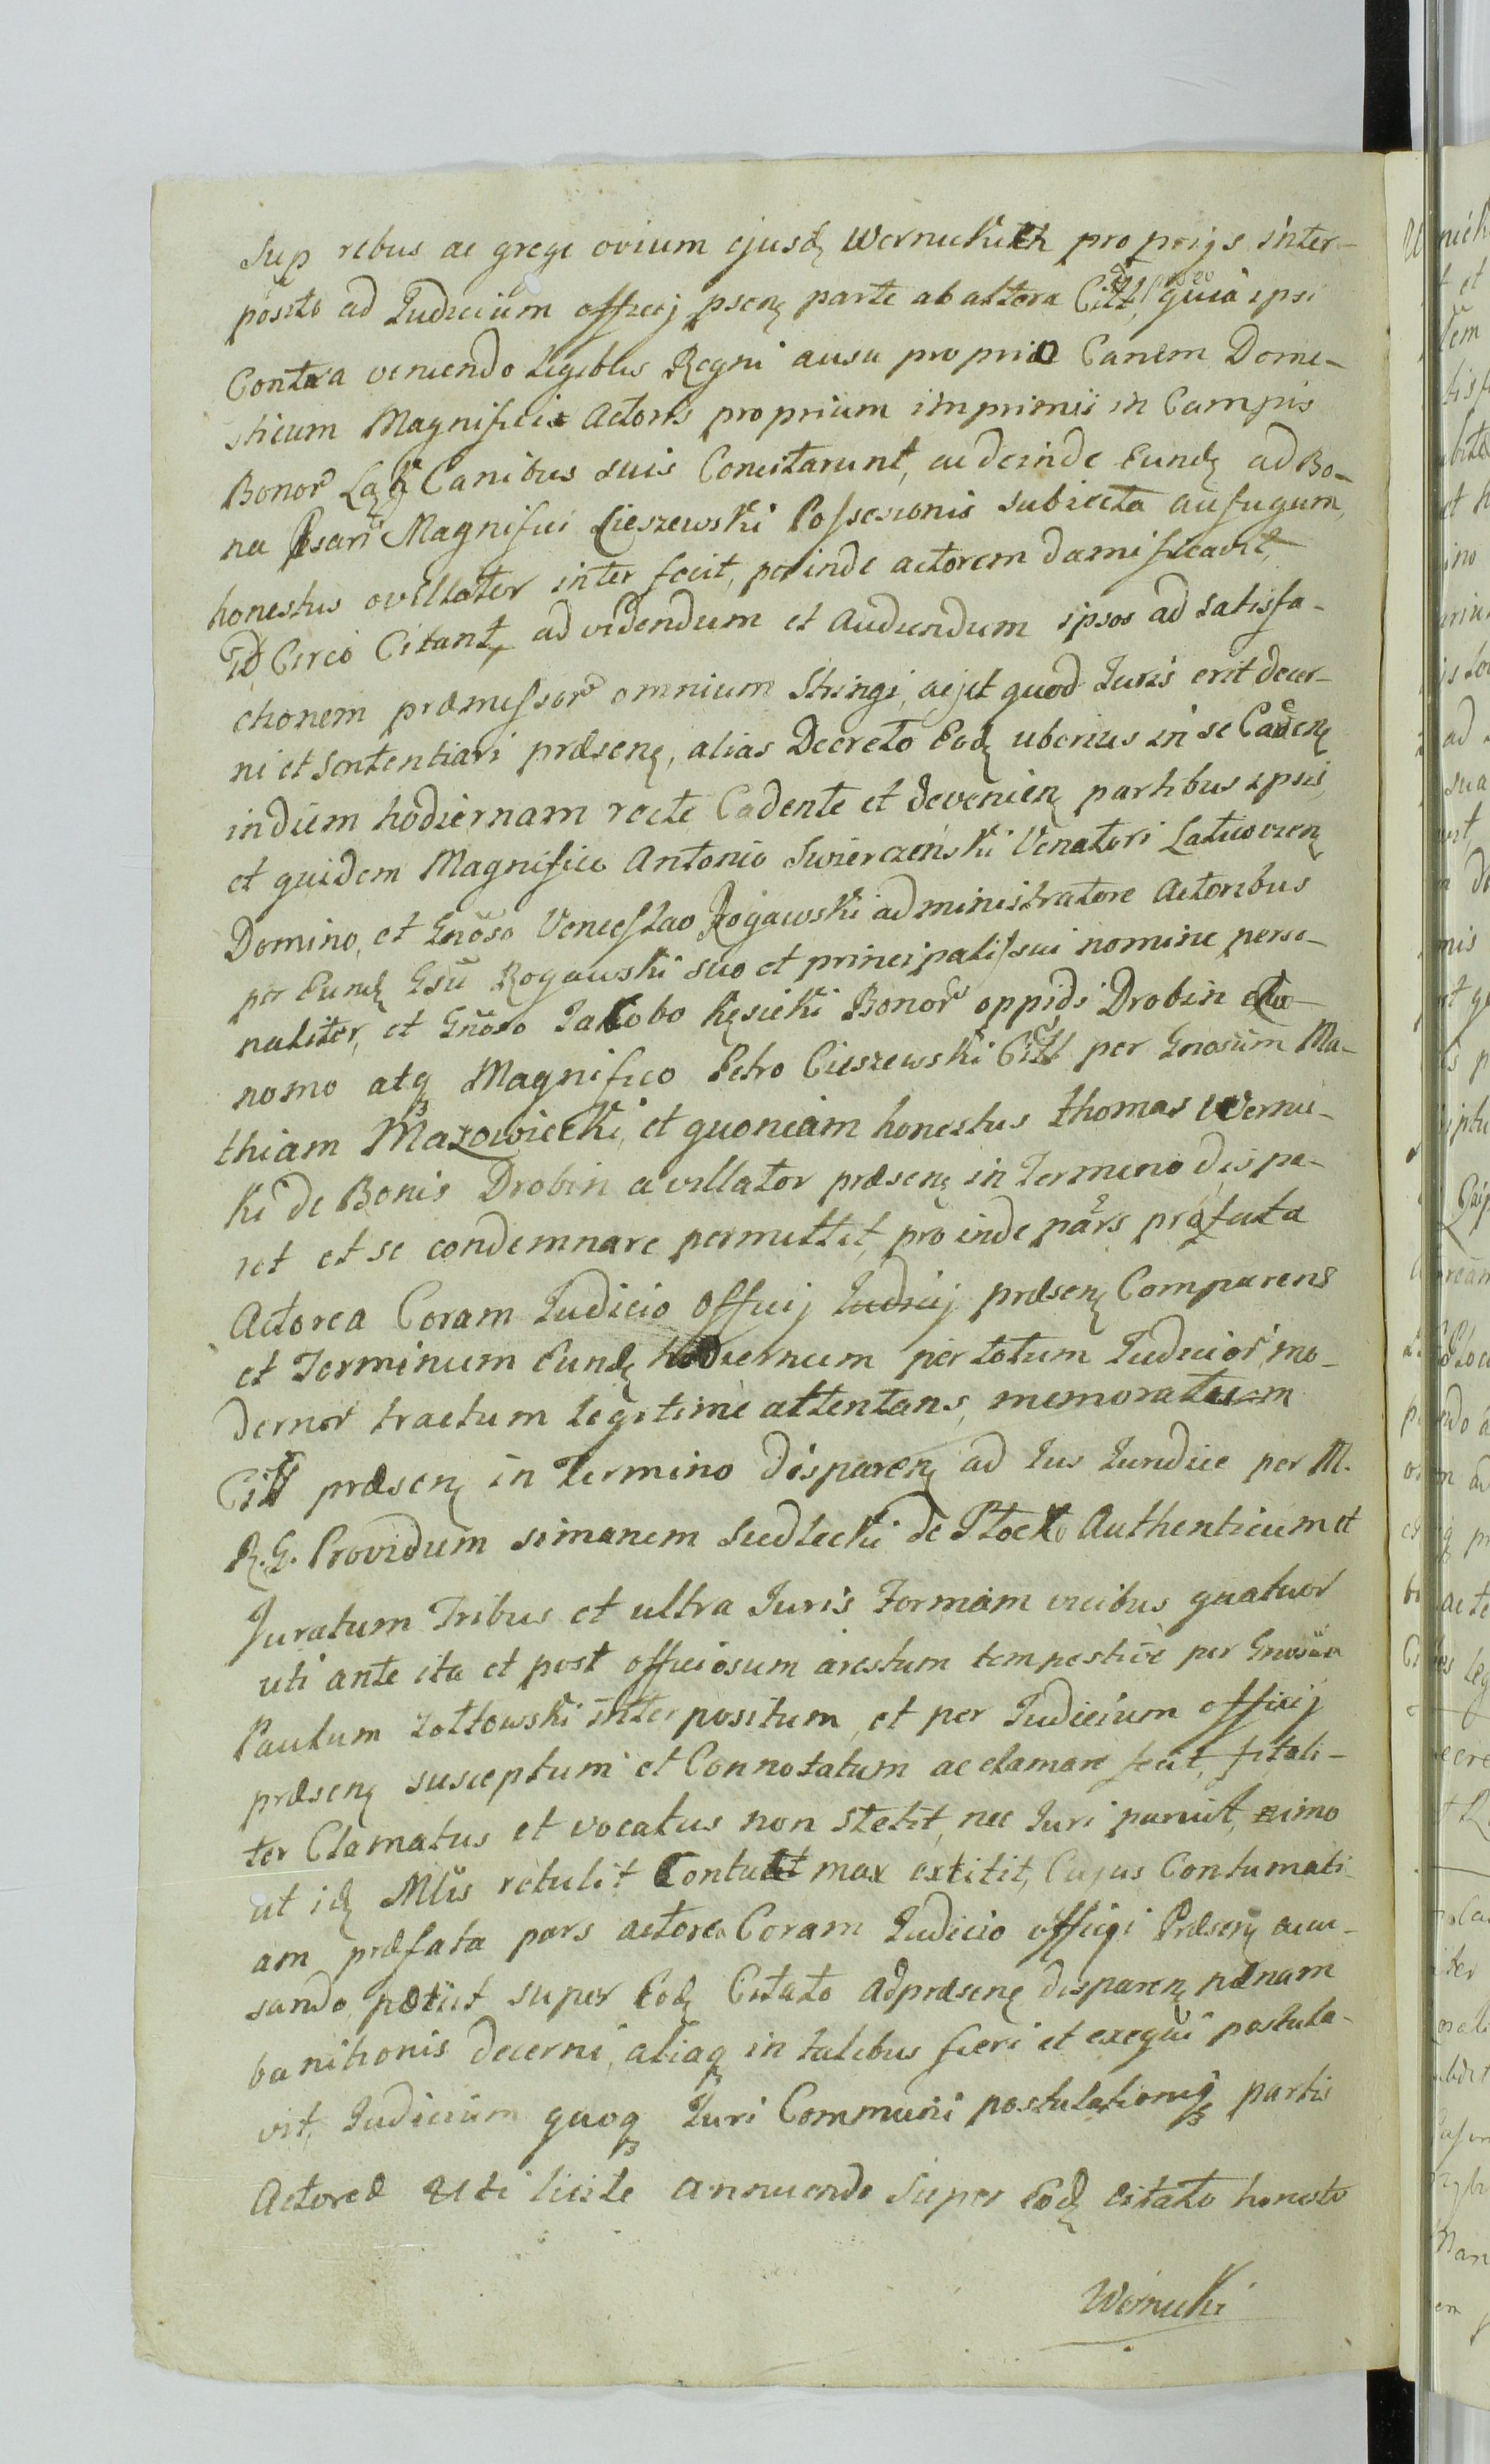 Sup rebus ac grege ovium ejusdę Wernickich proprijs inter-
posito ad Judicium officij psenę parte ab altera Citt, quia ipsi
Contra veniendo Legibus Regni ausu proprio Canem Dome-
sticum Magnifici Actoris proprium imprimis in Campis
Bonor Canibus suis Concitarunt, ac deinde Eundę ad Bo-
na Psari Magnifici Cieszewski Possesionis subiecta aufugum,
honestus ovillator inter fecit, perinde actorem damificavit,
Id Circo Citant, ad videndum et audiendum ipsos ad satisfa-
ctionem præmissor omnium Stringi, ac id quod Juris erit decer-
ni et sententiari præsenę, alias Decreto Eodę uberius in se Cadenę
in diem hodiernam recte Cadente et devenienę partibus ipsis,
et quidem Magnifico Antonio Swierczenski Venatori Latwoczenę
Domino, et Gnoso Venceslao Rogawski administratore Actoribus
per Eundę Gsū Rogawski suo et principalis sui nomine perso-
naliter, et Gnoso Jakobo Kęsicki Bonor oppidi Drobin Oeco-
nomo atq Magnifico Petro Cieszewski Citt per Gnosum Ma-
thiam Mazowiecki, et quoniam honestus Thomas Werni-
ki de Bonis Drobin avillator præsenę in Termino dispa-
ret et se condemnare permittit, pro inde pars præfata
Actorea Coram Judicio Officij Judicij præsenę Comparens
et Terminum Eundę hodiernum per totum Judicior mo-
dernor tractum legitime attentans, memoratum
Citt præsenę in Termino disparenę ad Jus Juridice per M.
R. G. Providum simonem Siedlecki de Plocko Authenticum et
Juratum Tribus et ultra Juris Formam vicibus quatuor
uti ante ita et post officiosum arestum tempestive per Gnosum
Paulum Zoltowski interpositum, et per Judicium officij
præsenę susceptum et Connotatum acclamare fecit, fitali-
ter Clamatus et vocatus non Stetit, nec Juri paruit, imo
ut idę Mlis retulit Contumax extitit, Cujus Contumati
am præfata pars actorea Coram Judicio officij Præsenę accu-
sando petiit super Eodę Citato ad præsenę disparenę pænam
banitionis decerni, aliaq in talibus fieri et exequi postula-
vit, Judicium quoq Juri Communi postulationiq partis
Actoreæ uti licite annuendo Super Eodę citato honesto
Wernicki